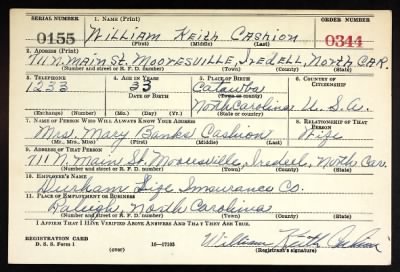 SERIAL NUMBER 1. NAME (Print) ORDER NUMBER
0155 William Keith Cashion 0344
(First) (Middle) (Last)
2. ADDRESS (Print)
711 N. Main St. Mooresville, Iredell, North Car.
(Number and street or R. F. D. number) (Town) (County) (State)
3. TELEPHONE 4. AGE IN YEARS 5. PLACE OF BIRTH 6. COUNTRY OF CITIZENSHIP
1233 33 Catawba
DATE OF BIRTH (Town or county)
North Carolina U. S. A.
7. NAME OF PERSON WHO WILL ALWAYS KNOW YOUR ADDRESS 8. RELATIONSHIP OF THAT PERSON
Mrs. Mary Banks Cashion Wife
(Mr., Mrs., Miss) (First) (Middle) (Last)
9. ADDRESS OF THAT PERSON
711 N. Main St. Mooresville, Iredell, North Car.
(Number and street or R. F. D. number) (Town) (County) (State)
10. EMPLOYER'S NAME
Durham Life Insurance Co.
11. PLACE OF EMPLOYMENT OR BUSINESS
Raleigh, North Carolina
(Number and street or R. F. D. number) (Town) (County) (State)
I AFFIRM THAT I HAVE VERIFIED ABOVE ANSWERS AND THAT THEY ARE TRUE.
REGISTRATION CARD William Keith Cashion
D. S. S. Form 1 (over) 16—17105 (Registrant's signature)